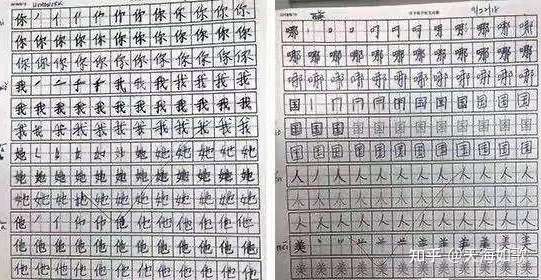 你 丿 亻 你 你 你 你 你 你
你 你 你 你 你 你 你 你 你 你 你 你
你 你 你 你 你 你 你 你 你 你 你 你
我 丿 二 我 我 我 我 我 我 我
我 我 我 我 我 我 我 我 我 我 我 我
我 我 我 我 我 我 我 我 我 我 我 我
她 她 她 她 她 她 她 她
她 她 她 她 她 她 她 她 她 她 她 她
她 她 她 她 她 她 她 她 她 她 她 她
他 丿 亻 他 他 他 他 他 他 他
他 他 他 他 他 他 他 他 他 他 他 他
他 他 他 他 他 他 他 他 他 他 他 他
哪 丨 口 哪 哪 哪
哪 哪 哪 哪 哪 哪 哪 哪 哪 哪 哪 哪
哪 哪 哪 哪 哪 哪 哪 哪 哪 哪 哪 哪
国 丨 冂 国 国 国 国
国 国 国 国 国 国 国 国 国 国 国 国
国 国 国 国 国 国 国 国 国 国 国 国
人 丿 人 人 人 人 人 人 人 人 人 人
人 人 人 人 人 人 人 人 人 人 人 人
人 人 人 人 人 人 人 人 人 人 人 人
美
美 美 美 美 美 美 美 美 美 美 美 美
知乎